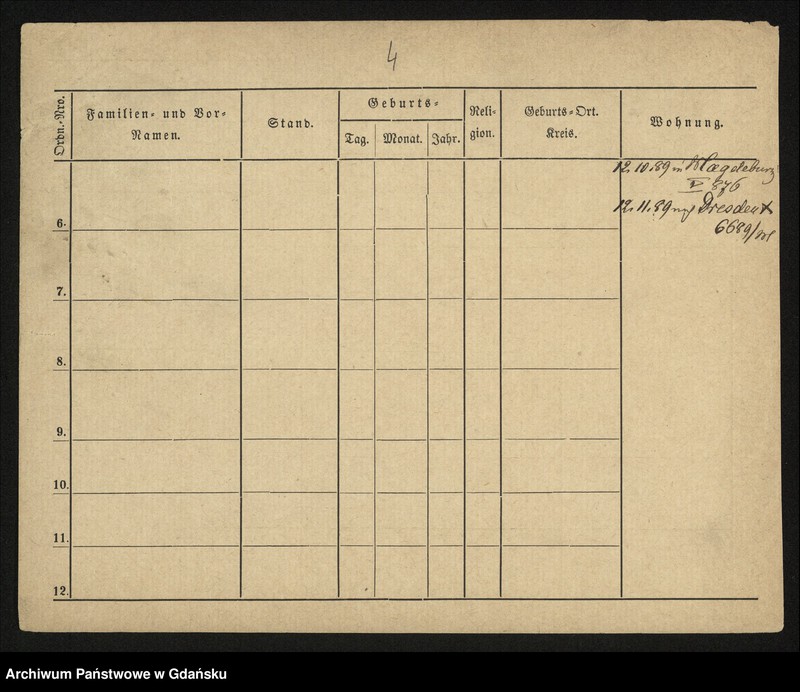 4
Ordn.-Nro.
Familien- und Vor-
Namen.
Stand.
Geburts-
Tag.
Monat.
Jahr.
Reli-
gion.
Geburts-Ort.
Kreis.
Wohnung.
12.10.89 Magdeburg
V 876
12.11.89 Dresden
6689/
6.
7.
8.
9.
10.
11.
12.
Archiwum Państwowe w Gdańsku